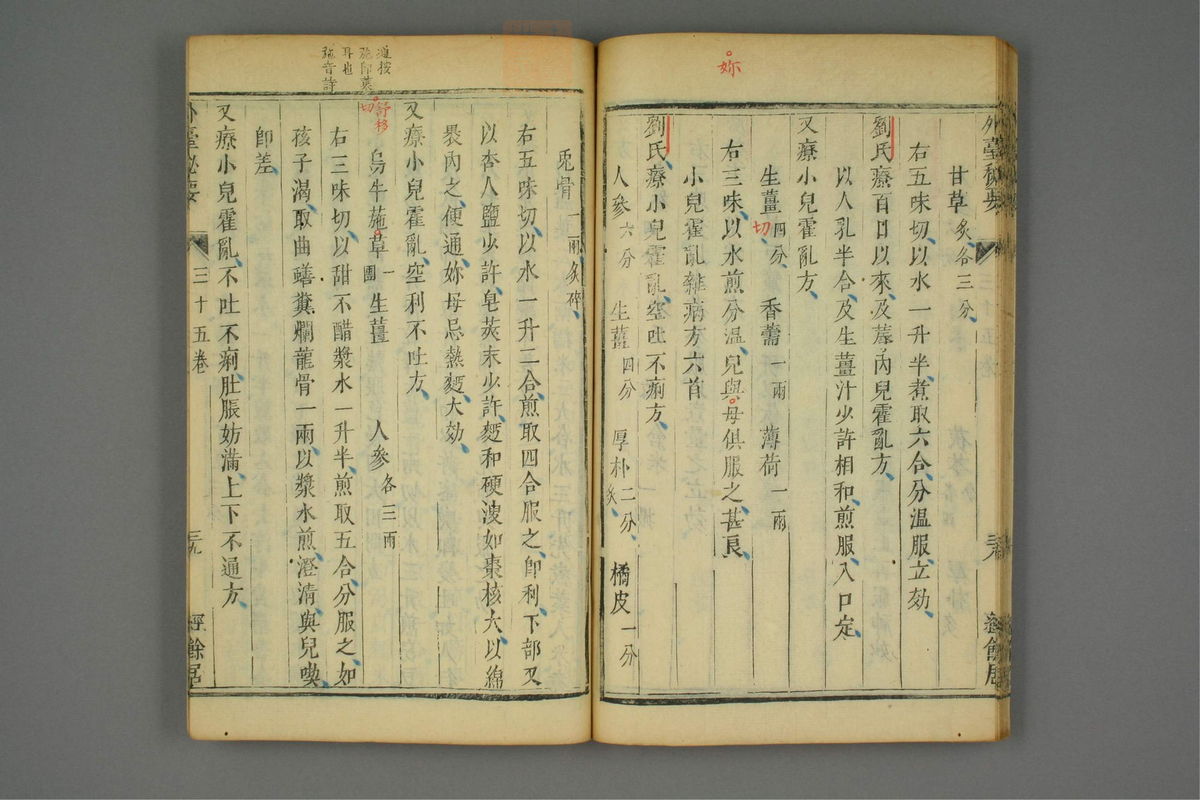 妳
外臺秘要
甘草炙各三分
右五味切以水一升半煮取六合分溫服立効
劉氏療百日以來及蓐內兒霍亂方
以人乳半合及生薑汁少許相和煎服入口定
又療小兒霍亂方
生薑四分切 香薷一兩 薄荷一兩
右三味以水煎分溫兒與母俱服之甚良
小兒霍亂雜病方六首
劉氏療小兒霍亂空吐不痢方
人參六分 生薑四分 厚朴二分炙 橘皮一分
經餘居
兎骨一兩炙碎
右五味切以水一升二合煎取四合服之即利下部又
以杏人鹽少許皂莢末少許麪和硬溲如棗核大以綿
褁內之便通妳母忌熱麪大効
又療小兒霍亂空利不吐方
烏牛葹草一團 生薑 人參各三兩
右三味切以甜不醋漿水一升半煎取五合分服之如
孩子渴取曲蟮糞爛龍骨一兩以漿水煎澄清與兒喫
即差
又療小兒霍亂不吐不痢肚脹妨滿上下不通方
外臺秘要 三十五卷 三九 經餘居
舒移
切